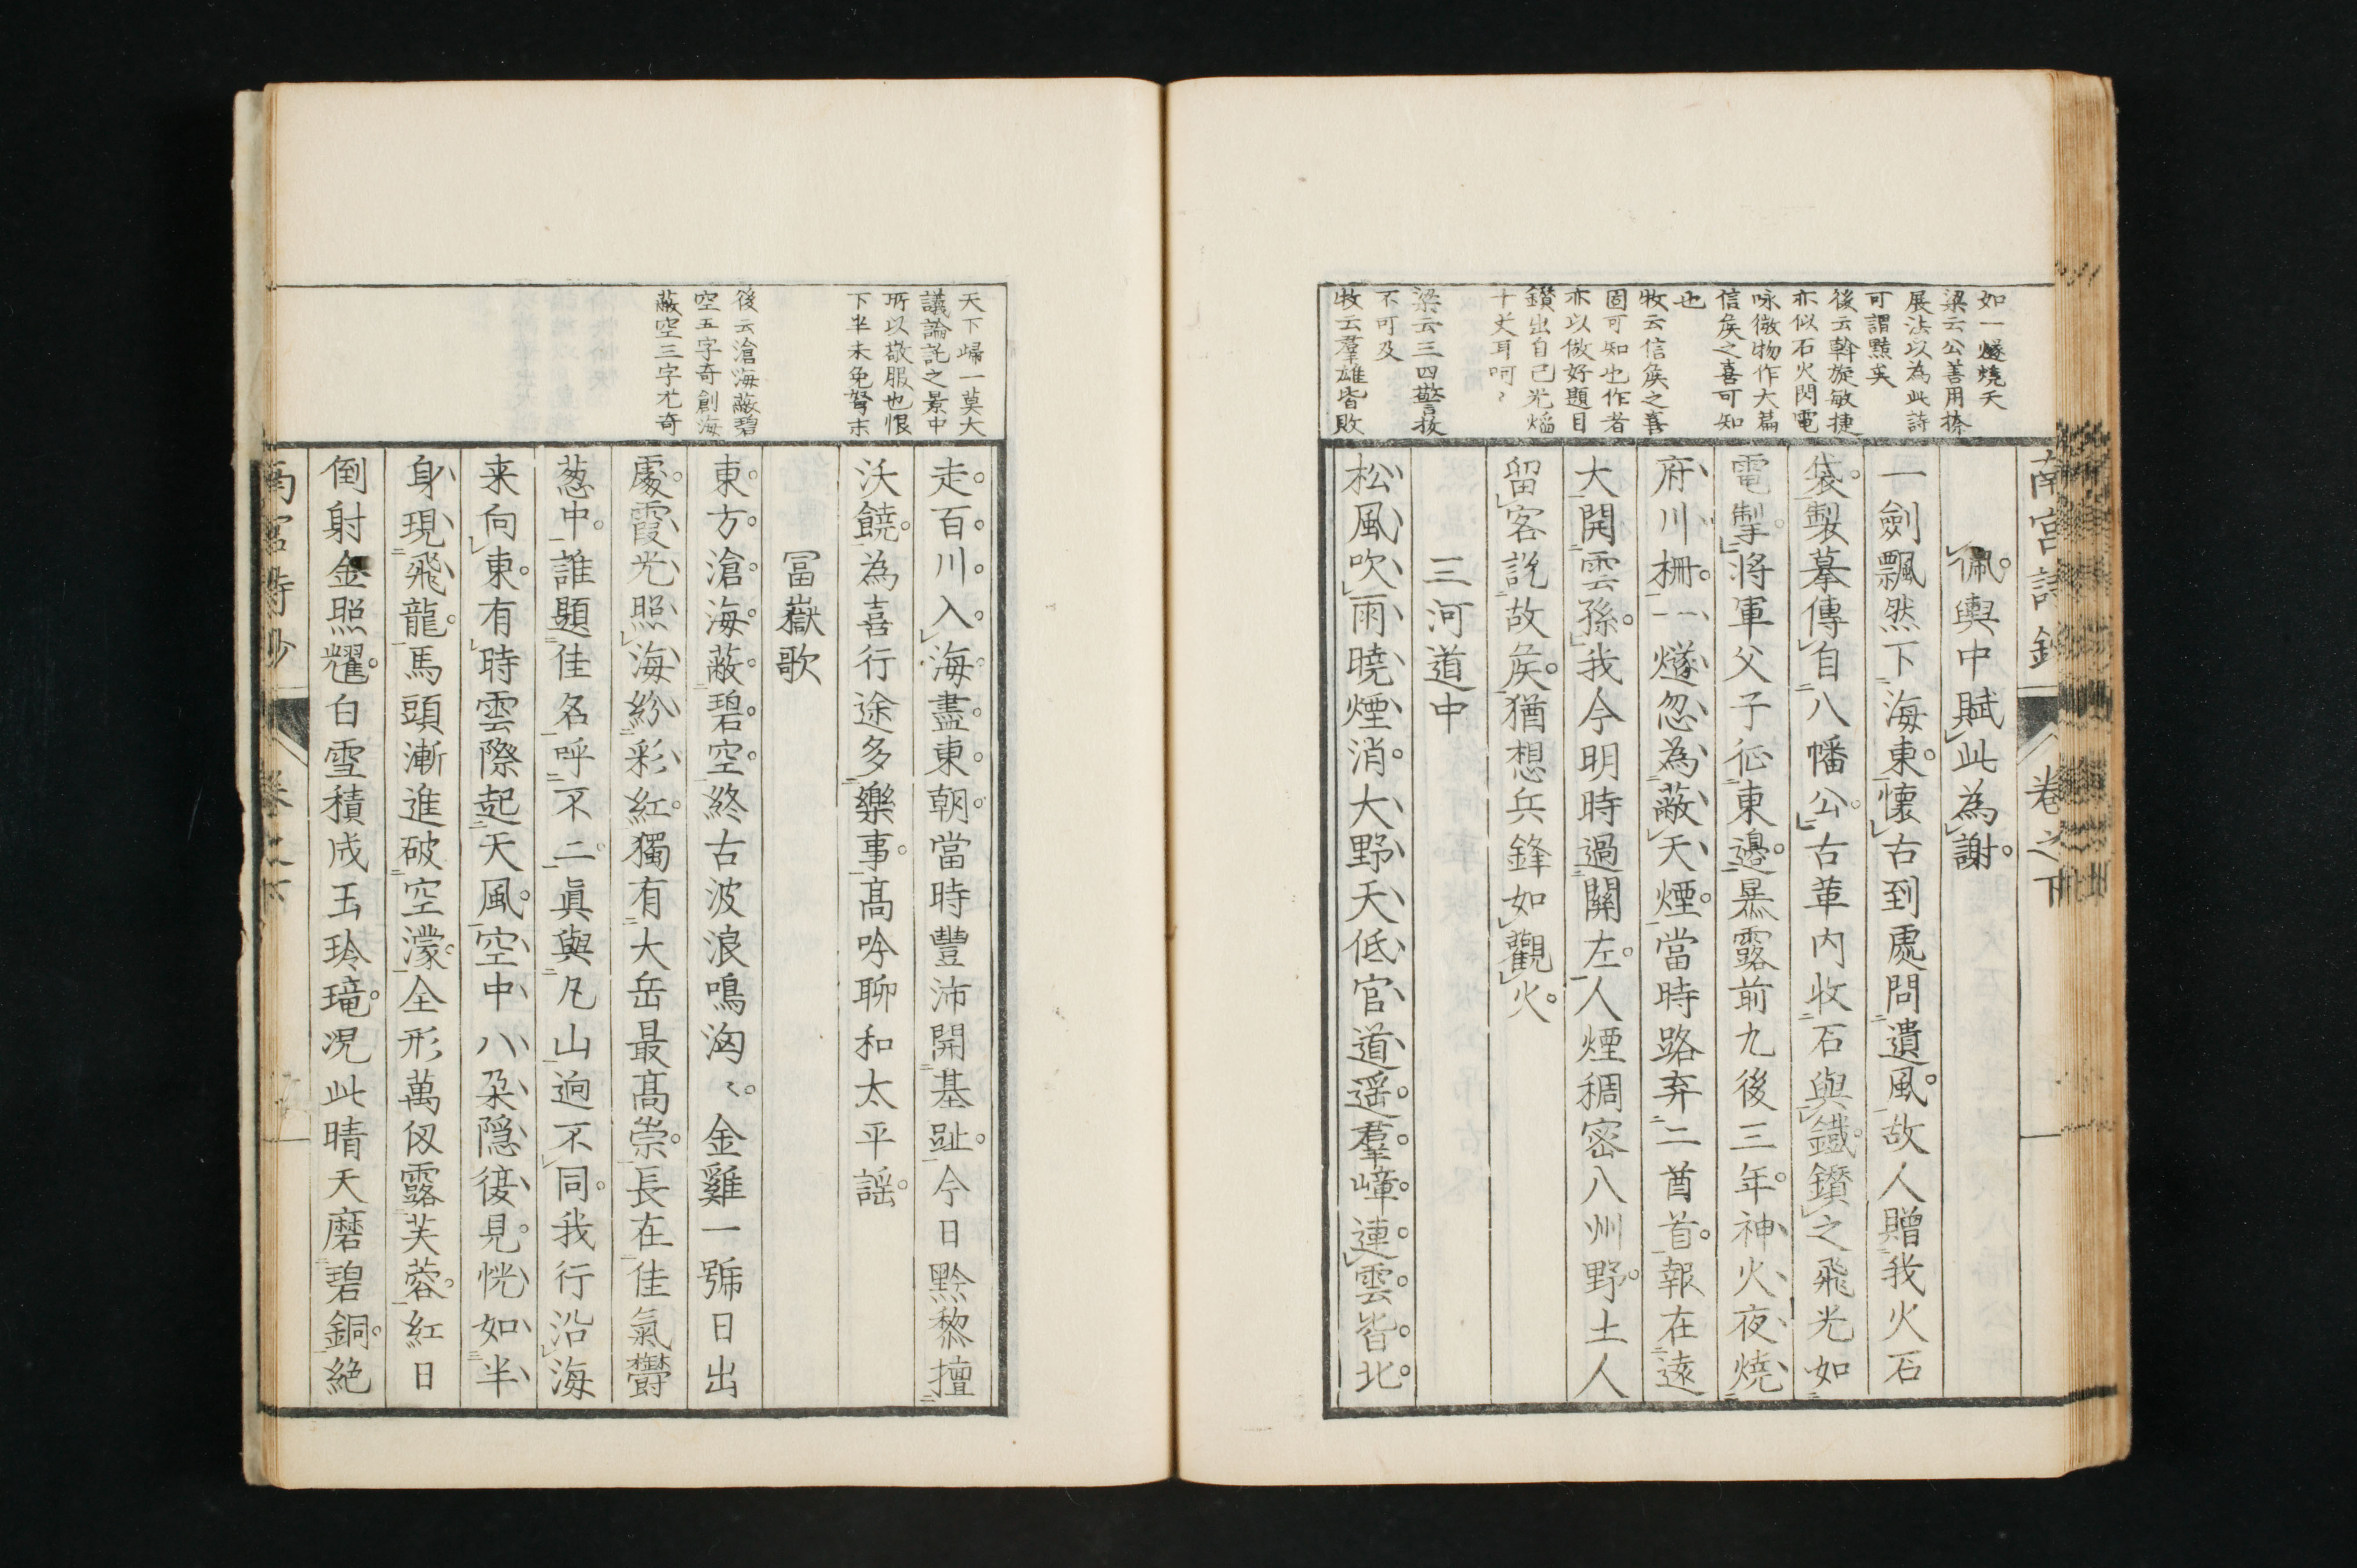 南宮詩鈔
卷之下
如一燧燒天
梁云公善用搽
展法以為此詩
可謂黠矣
後云斡旋敏捷
亦似石火閃電
咏微物作大篇
信矦之喜可知
也
牧云信矦之喜
固可知也作者
亦以做好題目
鑚出自己光熖
十丈耳呵〻
梁云三四警拔
不可及
牧云羣雄皆敗
佩輿中賦此為謝
一劍飄然下海東懷古到處問遺風故人贈我火石
袋製摹傳自八幡公古革内收石與鐵鑚之飛光如
電掣將軍父子征東邊暴露前九後三年神火夜燒
府川柵一燧忽為蔽天煙當時路弃二酋首報在遠
大開雲孫我今明時過關左人煙稠密八州野土人
留客説故矦猶想兵鋒如觀火
三河道中
松風吹雨曉煙消大野天低官道遥羣嶂連雲皆北
天下歸一莫大
議論託之景中
所以敬服也恨
下半未免弩末
後云滄海蔽碧
空五字奇創海
蔽空三字尤奇
走百川入海盡東朝當時豐沛開基趾今日黔黎擅
沃饒為喜行途多樂事髙吟聊和太平謡
冨嶽歌
東方滄海蔽碧空終古波浪鳴洶〻金雞一號日出
處霞光照海紛彩紅獨有大岳最髙崇長在佳氣欝
葱中誰題佳名呼不二眞與凡山逈不同我行沿海
来向東有時雲際起天風空中八朶隠復見恍如半
身現飛龍馬頭漸進破空濛全形萬仭露芙蓉紅日
倒射金照燿白雪積成玉玲瓏況此晴天磨碧銅絶
南宮詩鈔
卷之下